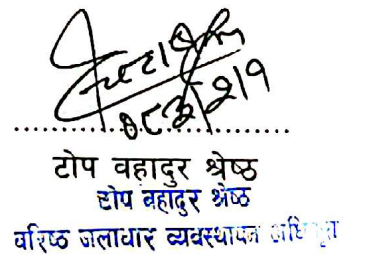 टोप वहादुर श्रेष्ठ
टोप वहादुर श्रेष्ठ
वरिष्ठ जलाधार व्यवस्थापन अधिकृत